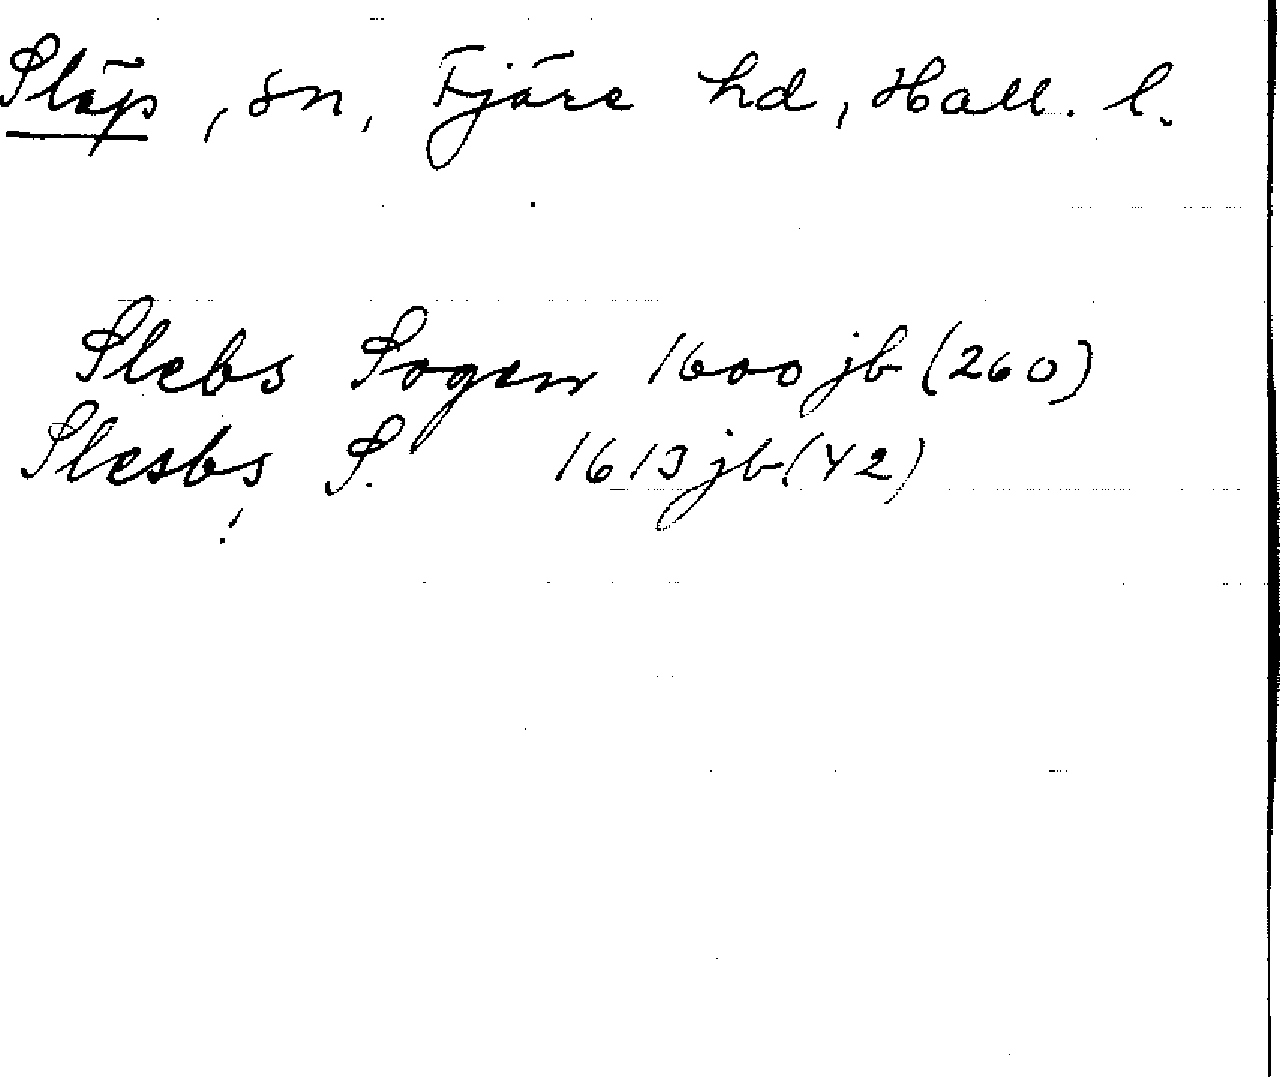 Släp, sn, Fjäre hd, Hall. l.
Slebs Sogen 1600 jb (260)
Slesbs S. 1613 jb. (42)
!